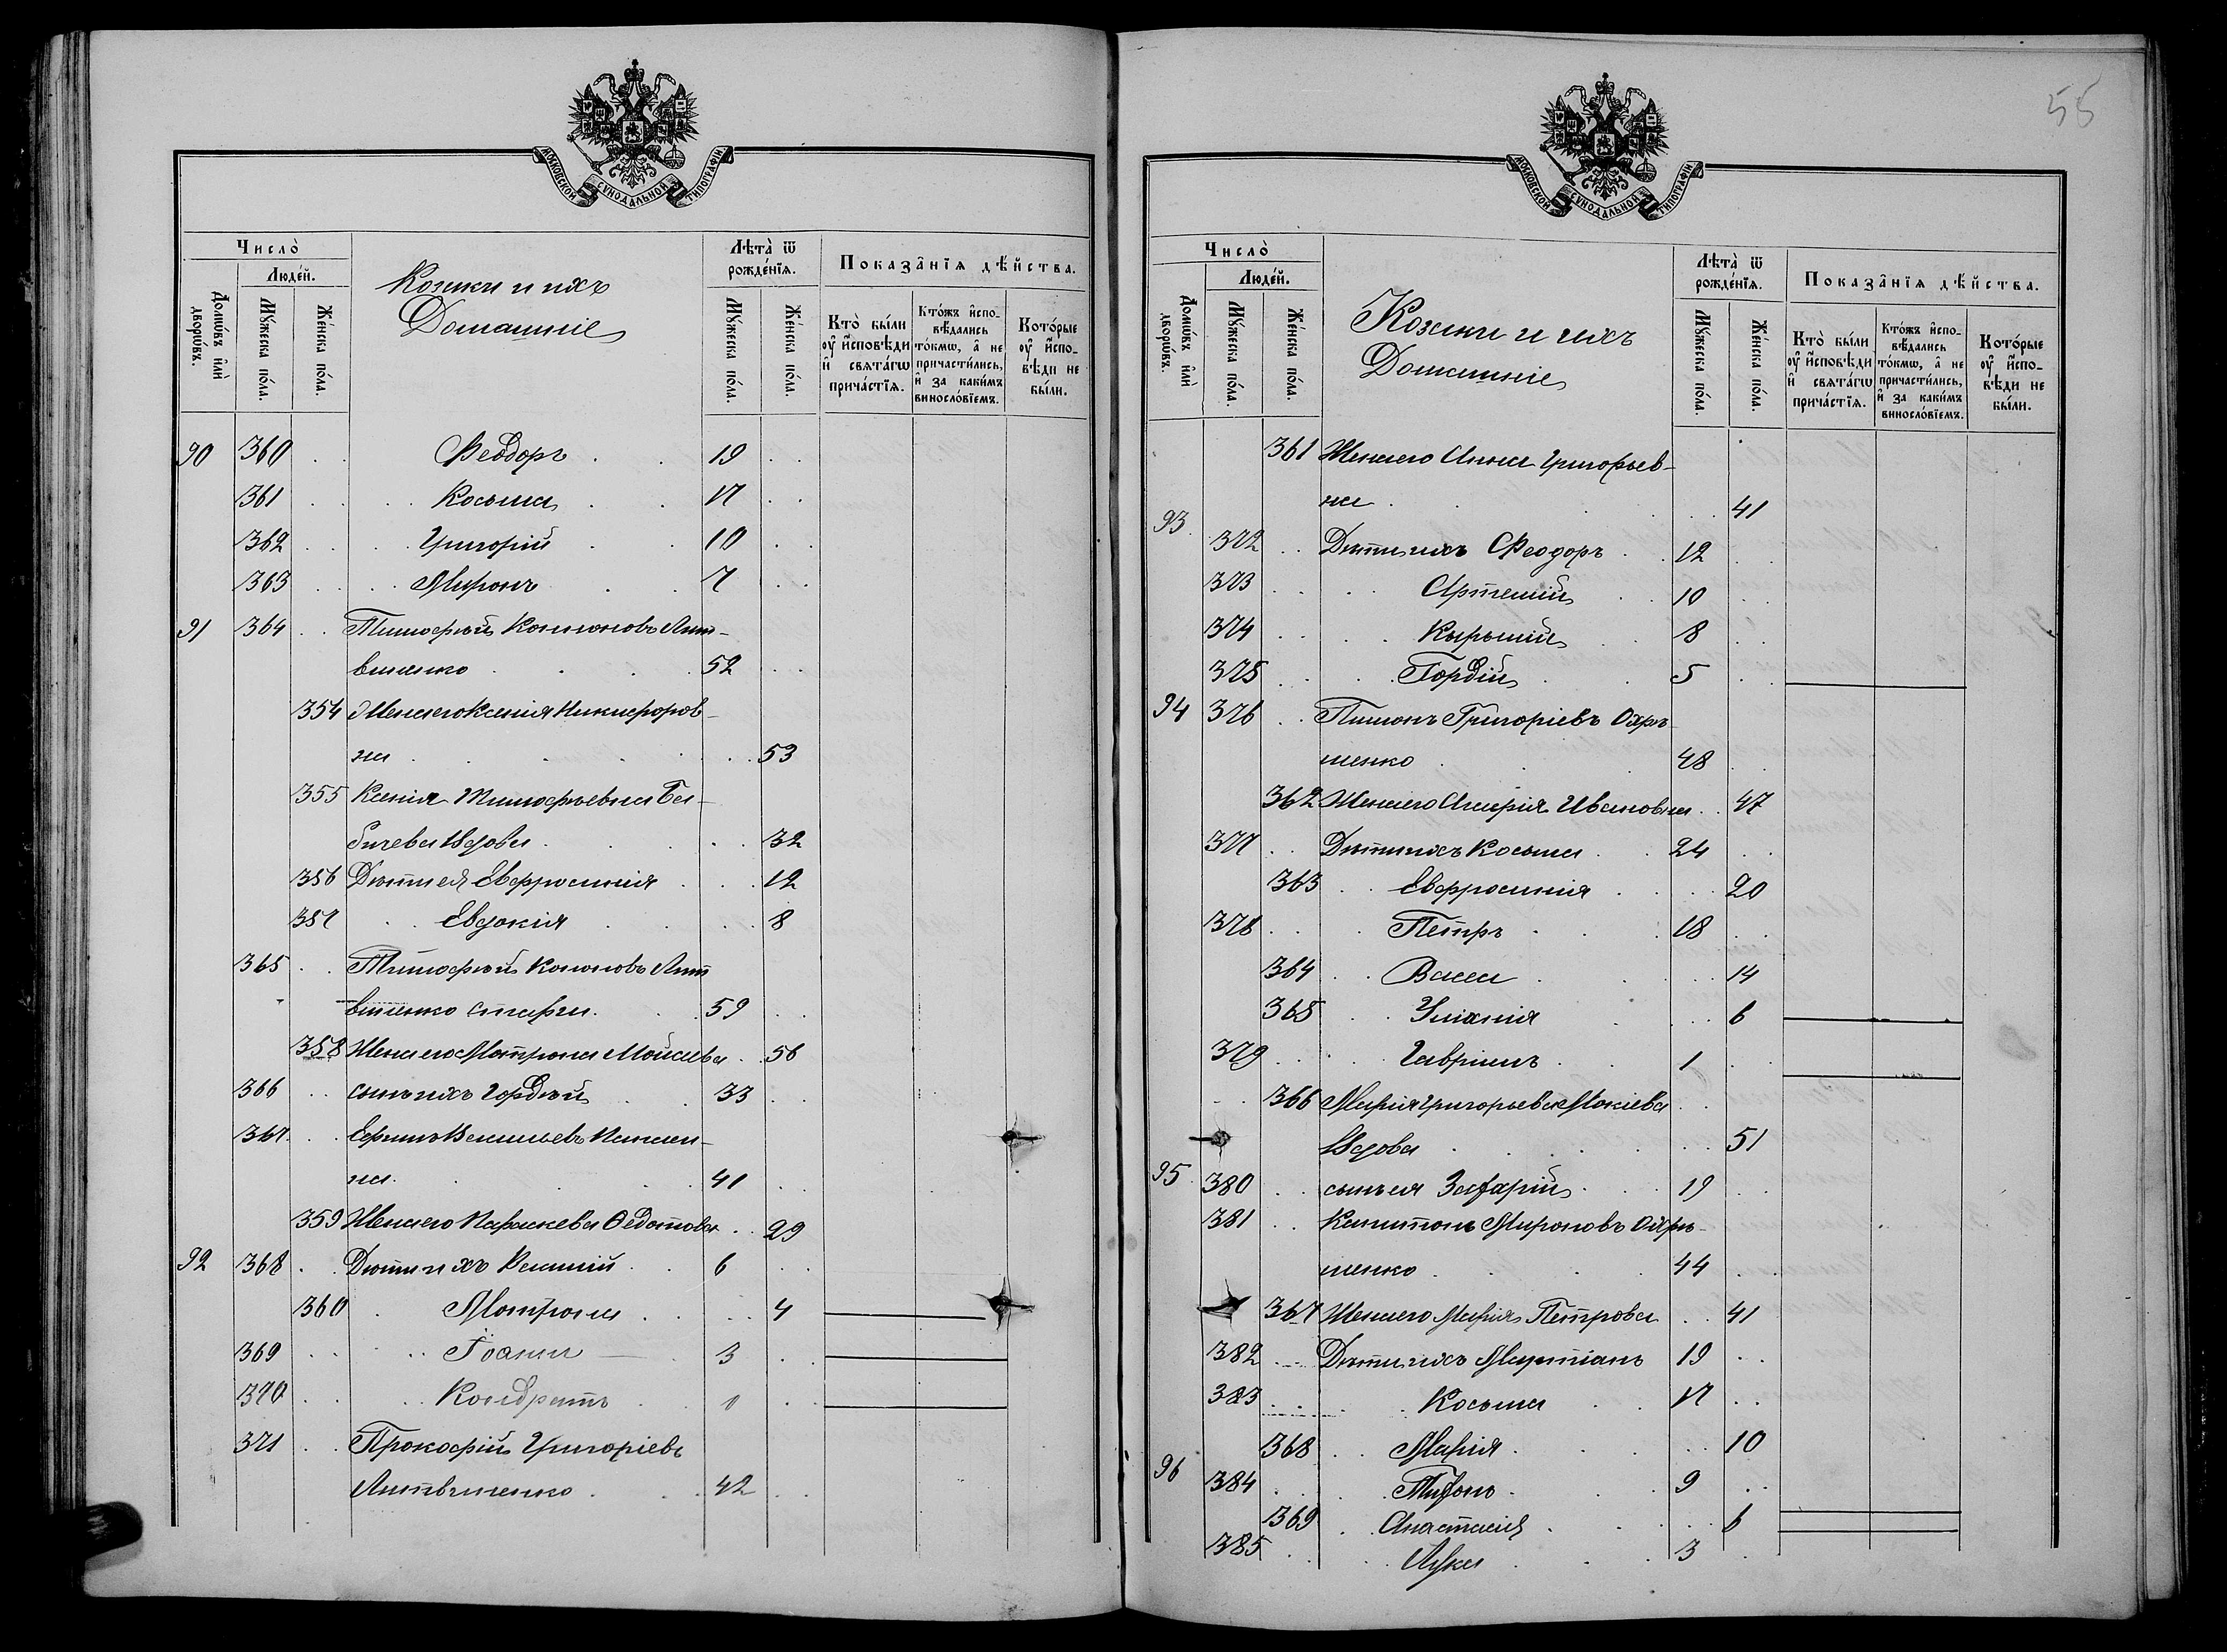 МОСКОВСКОЙ СѴНОДАЛЬНОЙ ТИПОГРАФІИ
Число̀
Людéй.
Домѡ́въ и҆лѝ дворѡ́въ.
Мꙋ́жеска по́ла.
Жéнска по́ла.
Козаки и ихъ
Домашніе
Лѣта̀ ѿ рождéнїѧ.
Мꙋ́жеска по́ла.
Жéнска по́ла.
Показа̂нїѧ дѣ́йства.
Кто̀ бы́ли оу҆ и҆́сповѣди и҆ свѧта́гѡ прича́стїѧ.
Кто́жъ и҆спо-вѣ́дались то́кмѡ, а҆ не причасти́лись, и҆ за каки́мъ винословїемъ.
Кото́рые оу҆ и҆́спо-вѣди не бы́ли.
90 360 . . Феодоръ . . 19 . .
361 . . . Косьма . . 17 . .
362 . . . Григорій . . 10 . .
363 . . . Миронъ . . 7 . .
91 364 . . Тимофѣй Кононовъ Лит-
виненко . . . 52 . .
354 Жена его Ксенія Никифоров-
на . . . . . . 53
355 Ксенія Тимофѣевна Ба-
бичева Вдова . . . . 32
356 Дѣти ея Евфросинія . . . 12
357 . . Евдокія . . . . 8
365 . . Тимофѣй Кононовъ Лит
виненко старш. . . 59 . .
358 Жена его Матрона Моисѣева . . 56
366 . . сынъ ихъ Гордѣй . . 33 . .
367 . . Ефимъ Васильевъ
на . . . 41 . .
359 Жена его Параскева Ѳедотова . . 29
92 368 . . Дѣти ихъ Василій . . 6 . .
360 . Матрона . . . . 4
369 . . . . Іоанн . 3 . .
370 . . . Кондратъ . . 1 .
371 . . Прокофій Григоріевъ
Литвиненко . . . 42 . .
55
МОСКОВСКОЙ СѴНОДАЛЬНОЙ ТИПОГРАФІИ
Число̀
Людéй.
Домѡ́въ и҆лѝ дворѡ́въ.
Мꙋ́жеска по́ла.
Жéнска по́ла.
Козаки и ихъ
Домашніе
Лѣта̀ ѿ рождéнїѧ.
Мꙋ́жеска по́ла.
Жéнска по́ла.
Показа̂нїѧ дѣ́йства.
Кто̀ бы́ли оу҆ и҆́сповѣди и҆ свѧта́гѡ прича́стїѧ.
Кто́жъ и҆спо-вѣ́дались то́кмѡ, а҆ не причасти́лись, и҆ за каки́мъ винословїемъ.
Кото́рые оу҆ и҆́спо-вѣди не бы́ли.
361 Жена его Анна Григорьев-
на . . . . . 41
93 372 . . Дѣти ихъ Феодоръ . . 12 . .
373 . . . . Артемій . . 10 . .
374 . . . . Кирьній . 8 . .
375 . . . Гордій . . 5 . .
94 376 . . Пимонъ Григоріевъ Охрѣ-
менко . . . 48 . .
362 Жена его Агафія Ивановна . . 47
377 . . Дѣти ихъ Косьма . . 24 . .
363 . . Евфросинія . . . . 20
378 . . . Петръ . . . 18 . .
364 . . Васса . . . . 14
365 . . Уліанія . . . . 6
379 . . . . Гавріилъ . . 1 . .
366 Марія Григорьева Мокіева . .
Вдова . . . . . . 51
95 380 . . сынъ ея Захарій . . . 19 . .
381 . . Капитонъ Мироновъ Охрѣ-
менко . . . 44 . .
367 Жена его Марія Петрова . . 41
382 . . Дѣти ихъ Мартіанъ 19 . .
383 . . . . Косьма . . 17 . .
368 . . Марія . . . . 10
96 384 . . . Тихонъ . . 9 . .
369 . . Анастасія . . . . 6
385 . . . Лука . . . 3 .